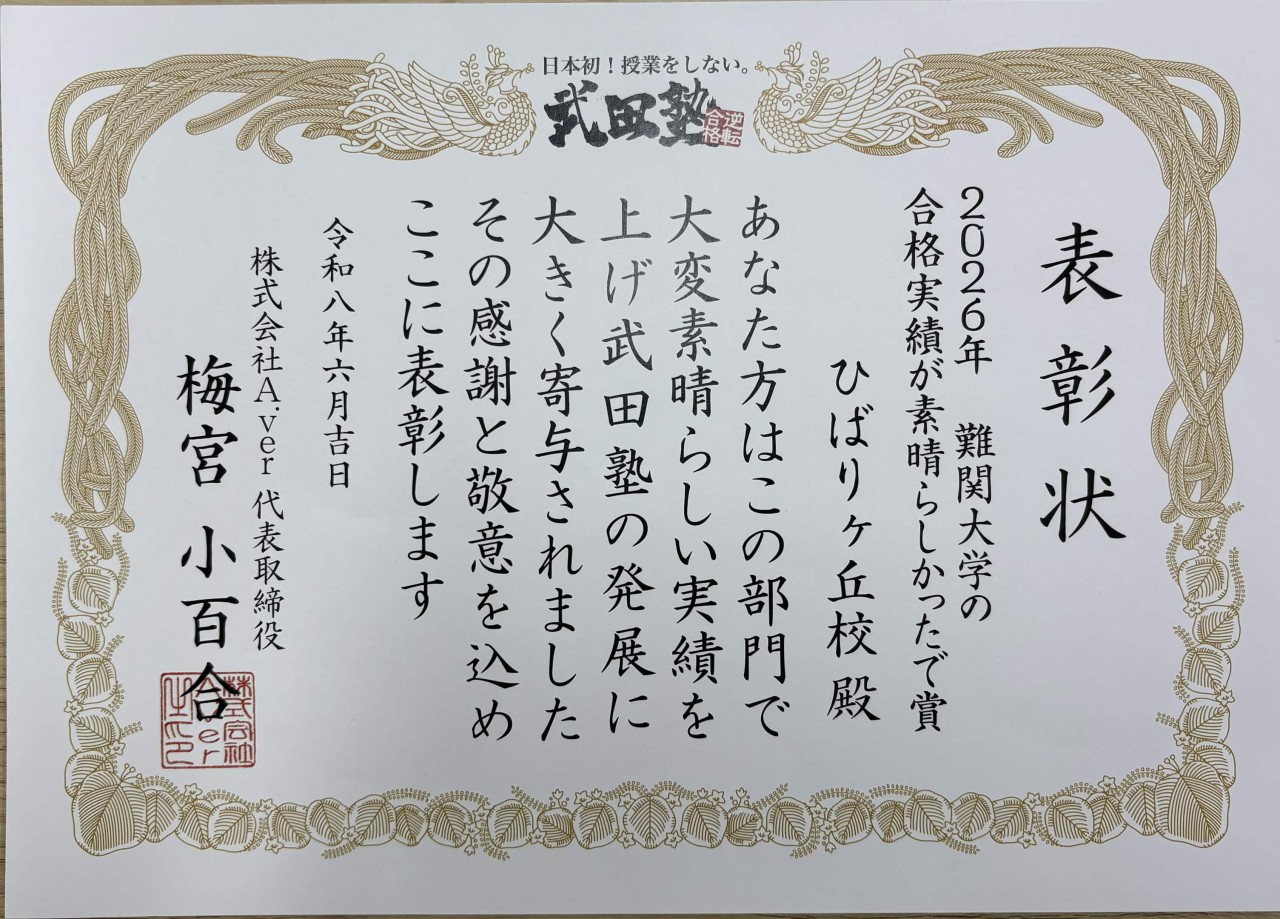 日本初！授業をしない。
武田塾
逆転合格
表彰状
2026年 難関大学の
合格実績が素晴らしかったで賞
ひばりヶ丘校 殿
あなた方はこの部門で
大変素晴らしい実績を
上げ武田塾の発展に
大きく寄与されました
その感謝と敬意を込め
ここに表彰します
令和八年六月吉日
株式会社A.ver 代表取締役
梅宮 小百合
株式会社
A.ver
之印